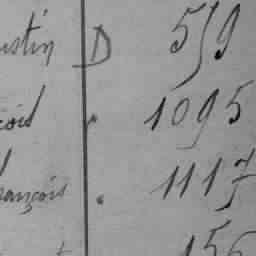 ustin D 519
çois " 1095
rançois " 1117
156